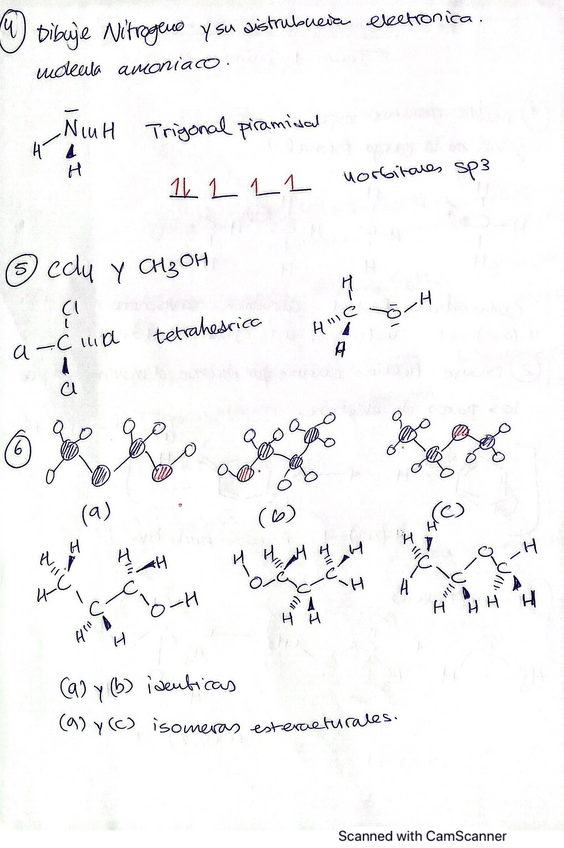 4 Dibuje Nitrogeno y su distrubucia electronica.
molecula amoniaco.
H N H Trigonal piramidal
H
4 orbitales sp3
5 CCl4 y CH3OH
Cl
Cl C Cl tetrahedrico
Cl
H
H C O H
H
6
(a) (b) (c)
H H H H C C C O H H H
H O C C C H H H H H H H
H H H C C O C H H H H H
(a) y (b) identicas
(a) y (c) isomeras esteructurales.
Scanned with CamScanner